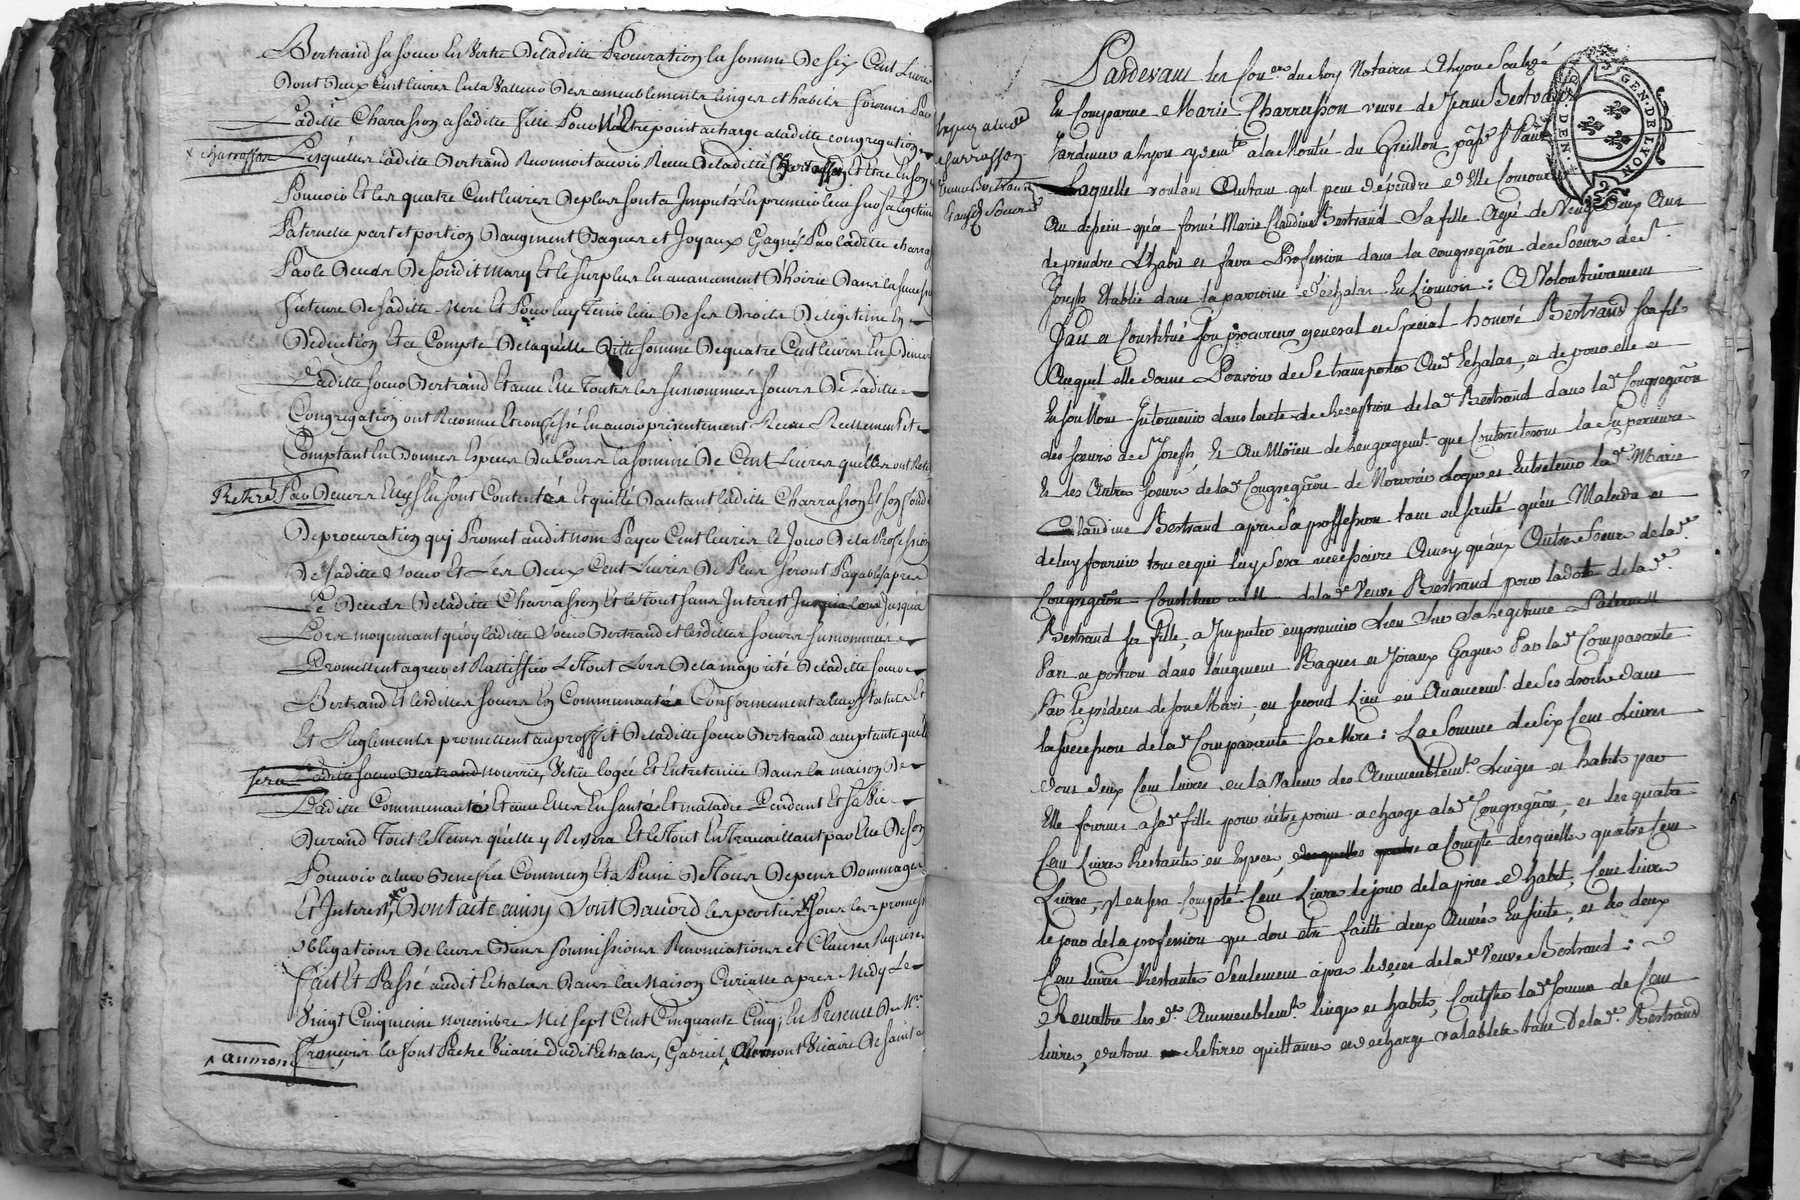 Bertrand sa soeur En Vertu De laditte Procuration la somme De six Cent Livres
Dont Deux Cent livres En la Valleur Des ameublements linges et habits fournis Par
Laditte Charasson a saditte fille Pour N'Etre point a charge a laditte congregation
x charrasson Lesquelles laditte Bertrand Reconnoit avoir Receu De laditte Et Etre En son
Pouvoir Et les quatre Cent livres De plus sont a Imputer En premier lieu sur sa legitime
Paternelle part et portion D'augment Bagues et Joyaux Gagnés Par laditte charra
Par le Deuds De sondit Mary Et le surplus En avancement D'hoirie Dans la succession
future De saditte Mere Et Pour luy Tenir lieu De ses Droits De legitime En
Deduction Et a Compte De laquelle Ditte somme De quatre Cent livres En Deniers
Laditte soeur Bertrand Et avec Elle Toutes les susnommées soeurs De laditte
Congregation ont Reconnu Et confessé En avoir presentement Receu Reellement et
Comptant En Bonnes Especes Du Cours la somme De Cent Livres qu'elles ont
Retiré Par Devers Elles En sont Contentées Et quitté D'autant laditte Charrasson Et son fondé
De procuration qui Promet audit nom Payer Cent livres le Jour De la Profession
De saditte soeur Et Les Deux Cent Livres De Plus seront Payables apres
Le Deuds De laditte Charrasson Et le Tout sans Interest Jusqua
Lors moyennant quoy laditte soeur Bertrand et lesdittes soeurs susnommées
Promettent agreer et Rattiffier Le Tout Lors De la majorité De laditte soeur
Bertrand Et lesdittes soeurs En Communauté Conformement a leurs statuts Et
Et Reglements promettent au proffit De laditte soeur Bertrand acceptante qu'elle
sera Laditte soeur Bertrand nourrie, Vetue logée Et Entretenüe Dans la maison De
Laditte Communauté Et avec Elles En santé Et maladie Pendant Et sa Vie
Durand Tout le Tems qu'elle y Restera Et le Tout En Travaillant par Elle De son
Pouvoir a leur Benefice Commun Et a Peine De Tous Depens Dommages
Et Interest, Dont acte ainsy sont D'acord les parties sous les promesses
obligations De leurs Biens soumissions Renonciations et Clauses Requises
Fait Et Passé audit Echalas Dans la Maison Curialle apres Midy Le
Vingt Cinquieme novembre Mil sept Cent Cinquante Cinq; En Presence De Mre
x aumont François la font Prêtre Vicaire Dudit Echalas, Gabriel Vicaire De Sainte
charrasson
Pardevant les Coners. du Roy Notaires A Lyon Soubsé
En Comparue Marie Charresson veuve de Jean Bertrand
Jardinier a Lyon y demte. a la Montée du Greillon, St. Paul
Laquelle voulant Autant qu'il peut dépendre d'Elle Concourir
Au dessein qu'a formé Marie Claudine Bertrand Sa fille Agée de Vingt deux Ans
de prendre L'habit et faire Profession dans la congregaõn des Soeurs de St.
Joseph Etablie dans la parroisse d'Echalas En Lionnois: A Volontairement
Fait et Constitué Son procureur general et Special honoré Bertrand Son fils
Auquel elle donne Pouvoir de Se transporter Aud. Echalas, et de pour elle et
En son Nom Intervenir dans lacte de Reception de lad. Bertrand dans lad. Congregaõn
des Soeurs de St. Joseph, Et Au Moïen de l'engagemt. que Contracteront la Superieure
et les Autres Soeurs de lad. Congregaõn de Nourrir Loger et Entretenir lad. Marie
Claudine Bertrand apres Sa proffession tant en Santé qu'en Maladie et
de luy fournir tout ce qui luy Sera necessaire Ainsy qu'aux Autres Soeurs de lad.
Congregaõn Constituer de lad. Veuve Bertrand pour la dote de lad.
Bertrand Sa fille, a Imputer en premier Lieu Sur Sa Legitime Paternelle
Part et portion dans l'augment Bagues et Joiaux Gagnés Par lad. Comparante
Par le prédeces de son Mari, en second Lieu en Avancemt. de Ses droits dans
la Succession de lad. Comparante Sa Mere: La Somme de Six Cent Livres
dont deux Cent livres en la Valeur des Ammeublemts. Linges et habits par
Elle fournis a sad. fille pour n'être point a charge a lad. Congregaõn, et les quatre
Cent Livres Restantes en Especes, a Compte desquelles quatre Cent
Livres, il en Sera Compté Cent Livres le jour de la prise d'habit, Cent livres
le jour de la profession qui doit etre faitte deux Années En suite, et les deux
Cent livres Restantes Seulement apres le deces de lad. Veuve Bertrand:
Remettre lesd. Ammeublemts. linge et habits, Compter lad. Somme de Cent
livres, du tout Retirer quittance et decharge valables tant de lad. Bertrand
GEN. DE LYON